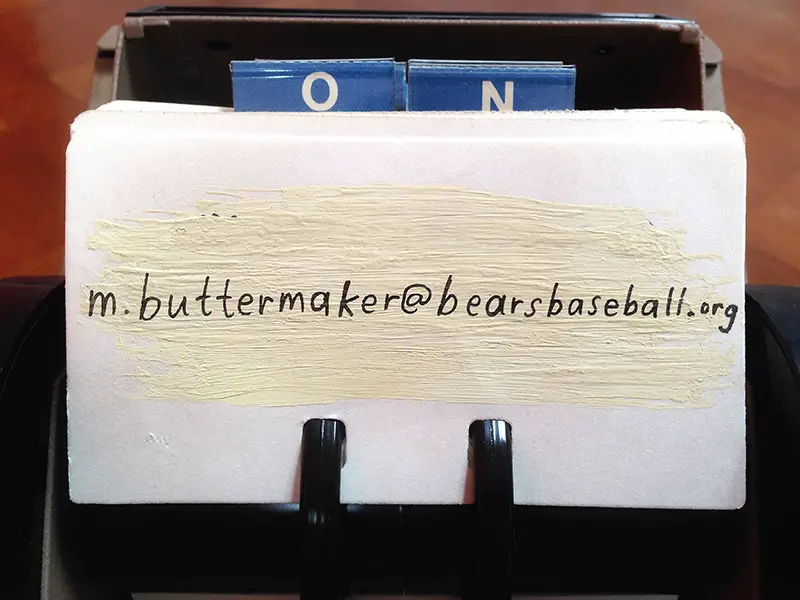 O N
m.buttermaker@bearsbaseball.org